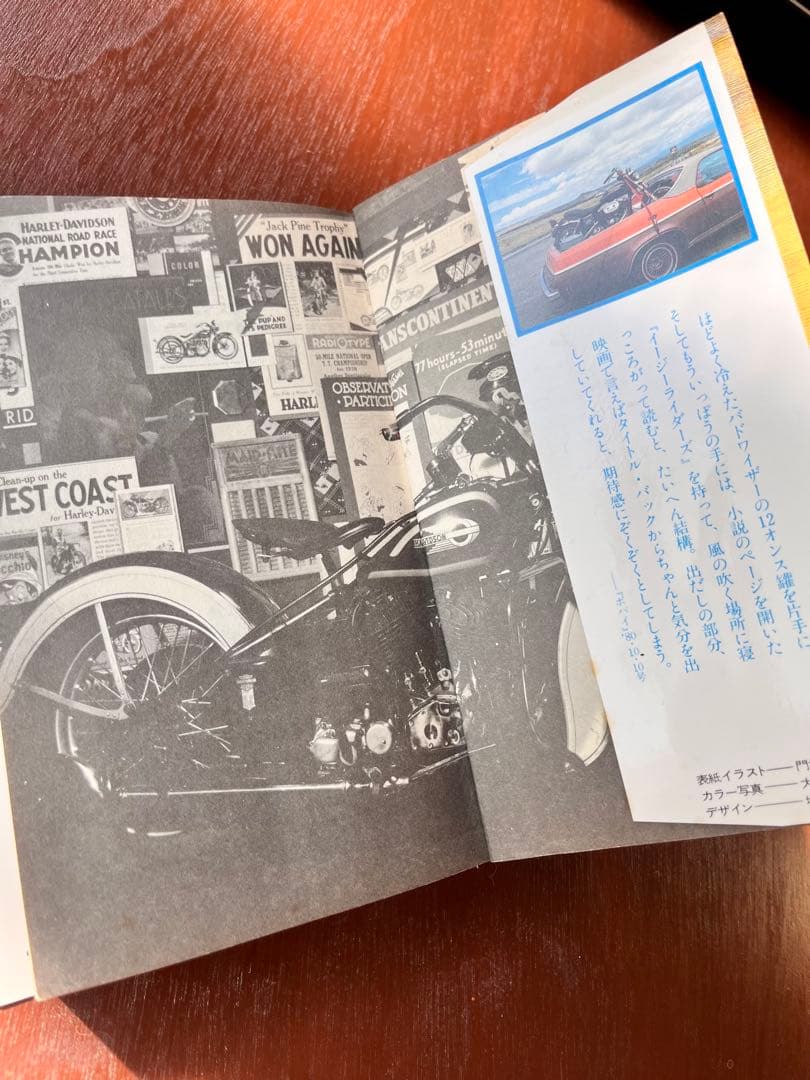 HARLEY-DAVIDSON
NATIONAL ROAD RACE
CHAMPION
"Jack Pine Trophy"
WON AGAIN
COLOR
PUP AND
PEDIGREE
RADIOTYPE
T.T. CHAMPIONSHIP
for 1938
HARL
OBSERVAT
PARTICI
RID
Clean-up on the
WEST COAST
for Harley-Dav
MAID-RITE
ANSCONTINEN
77 hours-53 minut
(ELAPSED TIME)
DAVIDSON
ほどよく冷えたバドワイザーの12オンス罐を片手に
そしてもういっぽうの手には、小説のページを開いた
『イージーライダーズ』を持って、風の吹く場所に寝
っころがって読むと、たいへん結構。出だしの部分、
映画で言えばタイトル・バックからちゃんと気分を出
していてくれると、期待感にぞくぞくとしてしまう。
―『ポパイ』'80・10・10号
表紙イラスト――門
カラー写真――大
デザイン――